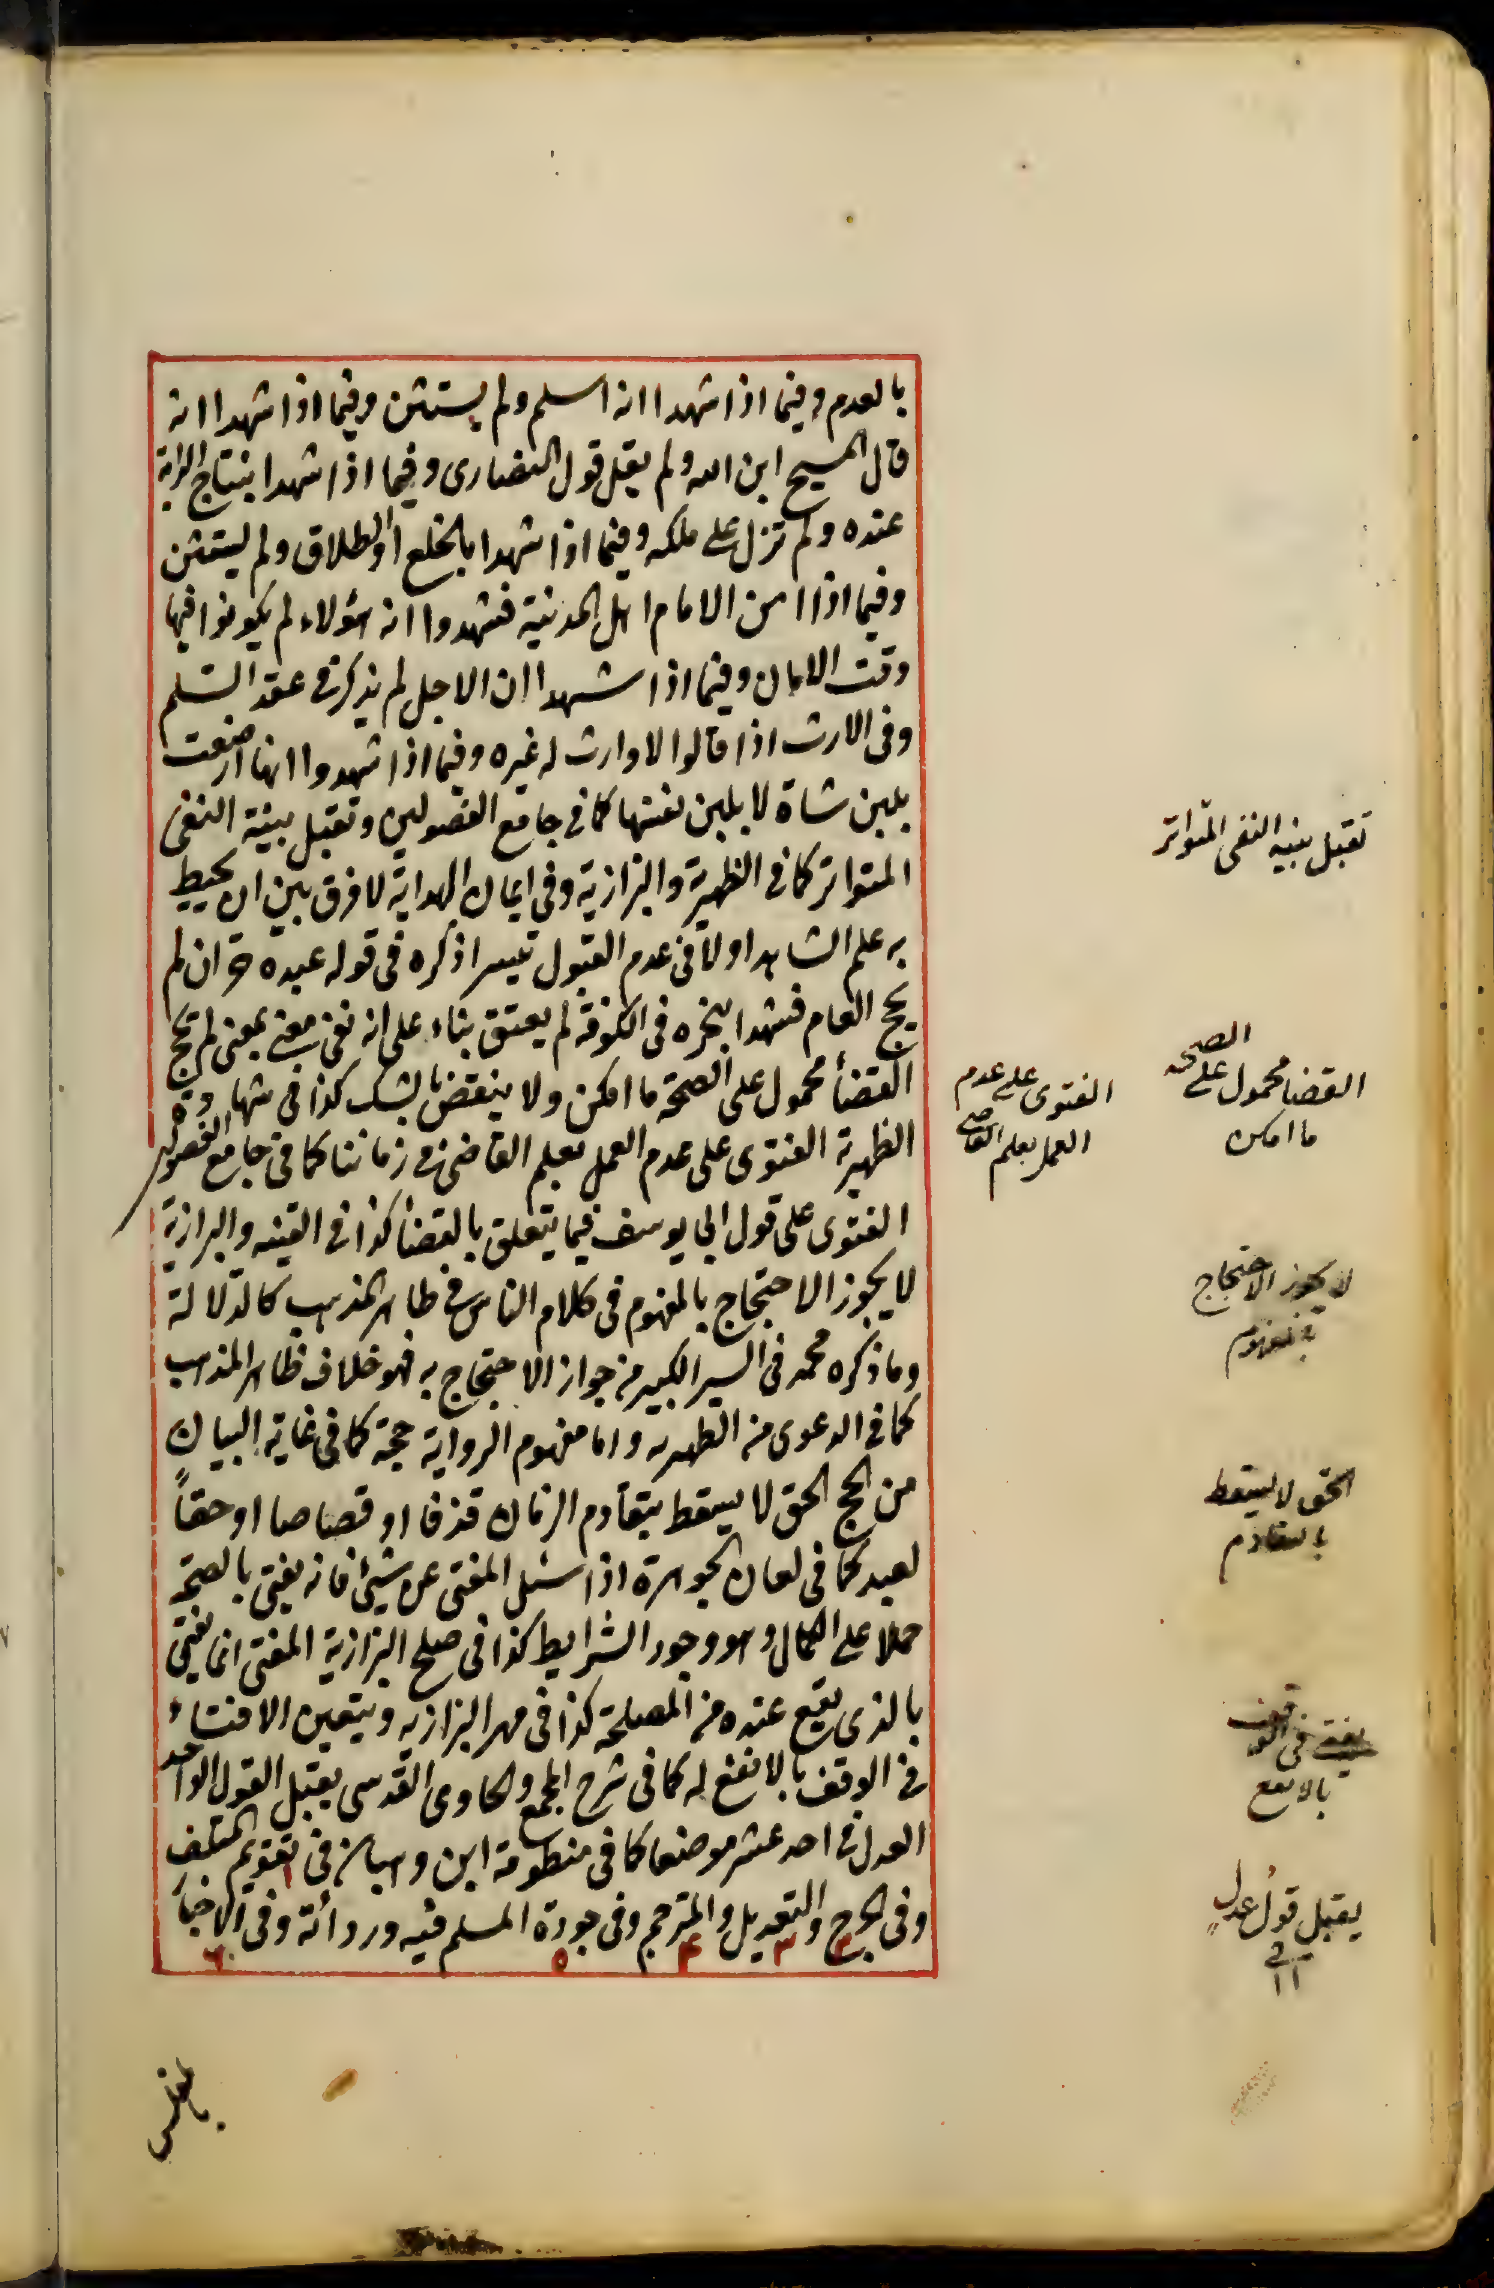 بالعدم وفيما اذا شهدا انه اسلم ولم يستثن وفيما اذا شهدا انه
قال المسيح ابن الله ولم يقل قول النصارى وفيما اذا شهدا بنتاج الدابة
عنده ولم تزل على ملكه وفيما اذا شهدا بالخلع او الطلاق ولم يستثن
وفيما اذا امن الامام اهل المدينة فشهدوا ان هؤلاء لم يكونوا فيها
وقت الامان وفيما اذا شهدا ان الاجل لم يذكر فى عقد السلم
وفى الارث اذا قالوا لا وارث له غيره وفيما اذا شهدوا انها ارضعت
بلبن شاة لا بلبن نفسها كما فى جامع الفصولين وتقبل بينة النفى
المتواتر كما فى الظهيرية والبزازية وفى ايمان الهداية لا فرق بين ان يحيط
به علم الشاهد اولا فى عدم القبول تيسرا ذكره فى قوله عبده حر ان لم
يحج العام فشهدا بنحره فى الكوفة لم يعتق بناء على انه نفى معنى بمعنى لم يحج
القضأ محمول على الصحة ما امكن ولا ينقض بالشك كذا فى شهادة
الظهيرية الفتوى على عدم العمل بعلم القاضى فى زماننا كما فى جامع الفصولين
الفتوى على قول ابى يوسف فيما يتعلق بالقضأ كذا فى القنيه والبزازية
لا يجوز الاحتجاج بالمفهوم فى كلام الناس فى ظاهر المذهب كالدلالة
وما ذكره محمد فى السير الكبير من جواز الاحتجاج به فهو خلاف ظاهر المذهب
كما فى الدعوى من الظهيريه واما مفهوم الرواية حجة كما فى غاية البيان
من الحج الحق لا يسقط بتقادم الزمان قذفا او قصاصا او حقاً
لعبد كما فى لعان الجوهرة اذا سئل المفتى عن شئ فانه يفتى بالصحة
حملا على الكمال وهو وجود الشرايط كذا فى صلح البزازية المفتى انما يفتى
بالذى يقع عنده من المصلحة كذا فى مهر البزازيه ويتعين الافتاء
فى الوقف بالانفع له كما فى شرح المجمع والحاوى القدسى يقبل القول الواحد
العدل فى احد عشر موضعا كما فى منظومة ابن وهبان فى تقويم المتلف
وفى الجرح والتعديل والمترجم وفى جودة المسلم فيه وردائة وفى الاخبار
١ ٢ ٣ ۴ ٥ ۶
تقبل بينه النفى المتواتر
القضا محمول على الصحه
ما امكن
الفتوى على عدم
العمل بعلم القاضى
لا يجوز الاحتجاج
بمفهوم
الحق لا يسقط
بالتقادم
يفتى فى الوقف
بالانفع
يقبل قول عدل
فى ١١